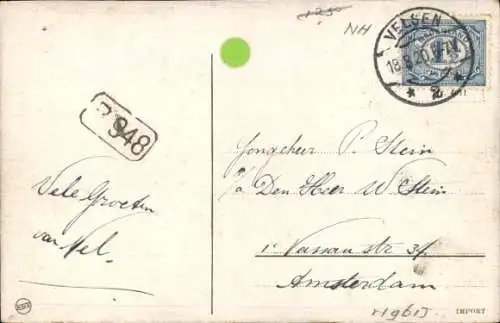 1250
NH
VELSEN
18.8.20
2
948
Vele Groeten
van Nel.
Jongeheer P. Stein
p/a Den Heer W Stein
1e Nassau str 31
Amsterdam
IMPORT